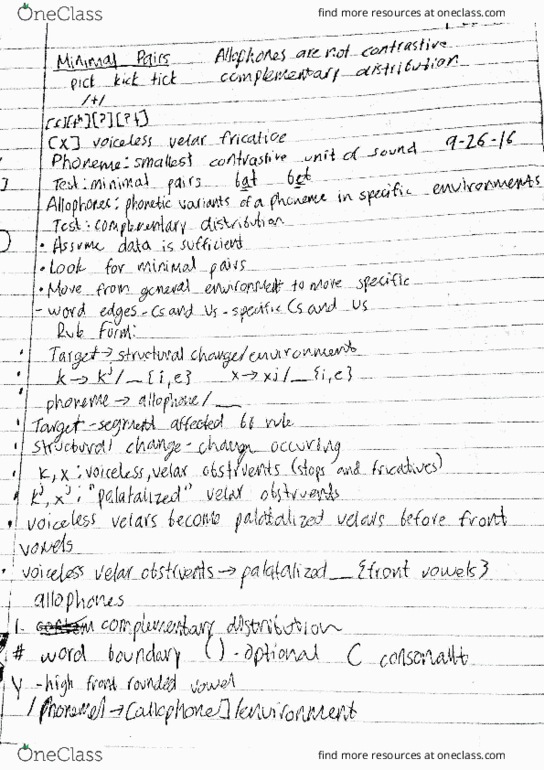 OneClass
find more resources at oneclass.com
Minimal Pairs
Allophones are not contrastive
pick kick tick
complementary distribution
/t/
[t][tʰ][ʔ][?t]
[x] voiceless velar fricative
9-26-16
Phoneme: smallest contrastive unit of sound
Test: minimal pairs bat bet
Allophones: phonetic variants of a phoneme in specific environments
Test: complementary distribution
• Assume data is sufficient
• Look for minimal pairs
• Move from general environment to more specific
- word edges - Cs and Vs - specific Cs and Vs
Rule Form:
Target → structural change/environment
k → kʲ/__{i,e} x → xj/__{i,e}
phoneme → allophone/__
Target - segment affected by rule
structural change - change occuring
k, x : voiceless, velar obstruents (stops and fricatives)
kʲ, xʲ : "palatalized" velar obstruents
voiceless velars become palatalized velars before front
vowels
voiceless velar obstruents → palatalized __{front vowels}
allophones
1. complementary distribution
# word boundary () - optional C consonant
y - high front rounded vowel
/phoneme/ → [allophone]/environment
OneClass
find more resources at oneclass.com